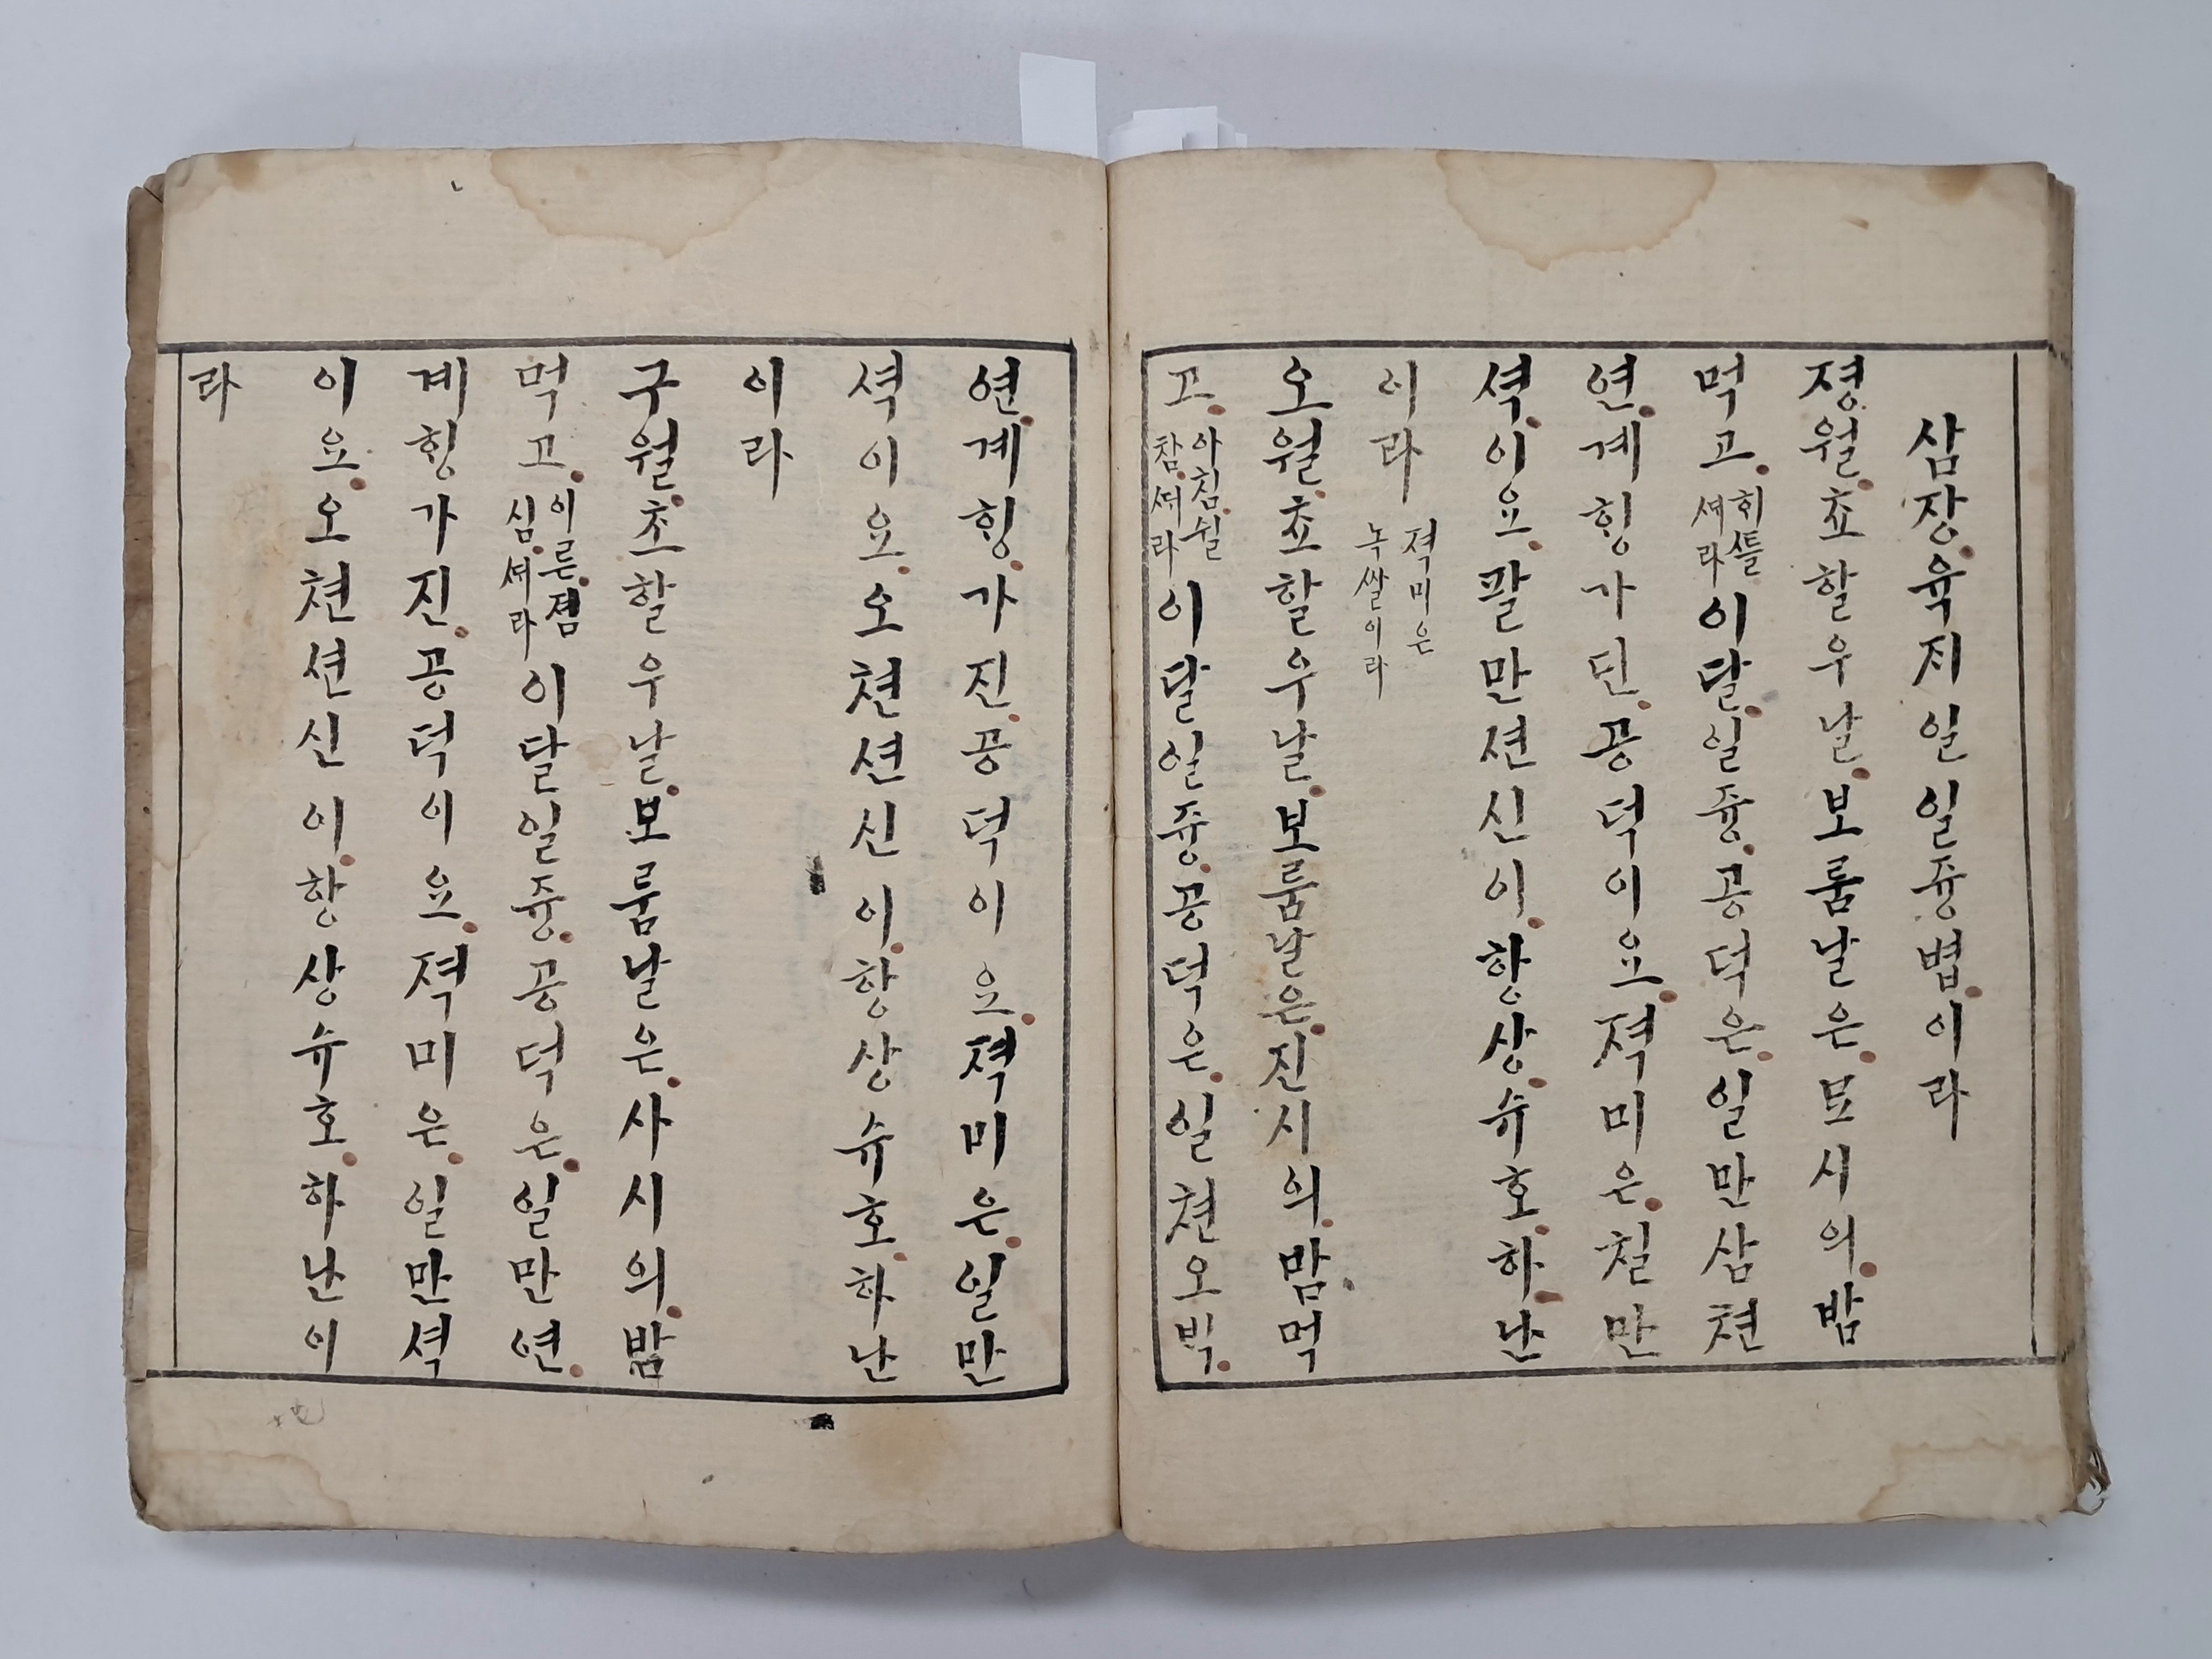 삼장육ᄌᆡ일일쥼볍이라
졍월쵸할우날보룸날은묘시의밥
먹고ᄒᆡ틀셰라이달일쥼공덕은일만삼쳔
연계ᄒᆡᆼ가딘공덕이요젹미은칠만
셕이요팔만션신이항상슈호하난
이라젹미은녹쌀이라
오월쵸할우날보룸날은진시의밤먹
고아침쉴참셰라이달일쥼공덕은일쳔오ᄇᆡᆨ
연계ᄒᆡᆼ가진공덕이요젹미은일만
셕이요오쳔션신이항상슈호하난
이라
구월쵸할우날보룸날은사시의밥
먹고이른졈심셰라이달일쥼공덕은일만연
계ᄒᆡᆼ가진공덕이요젹미은일만셕
이요오쳔션신이항상슈호하난이
라